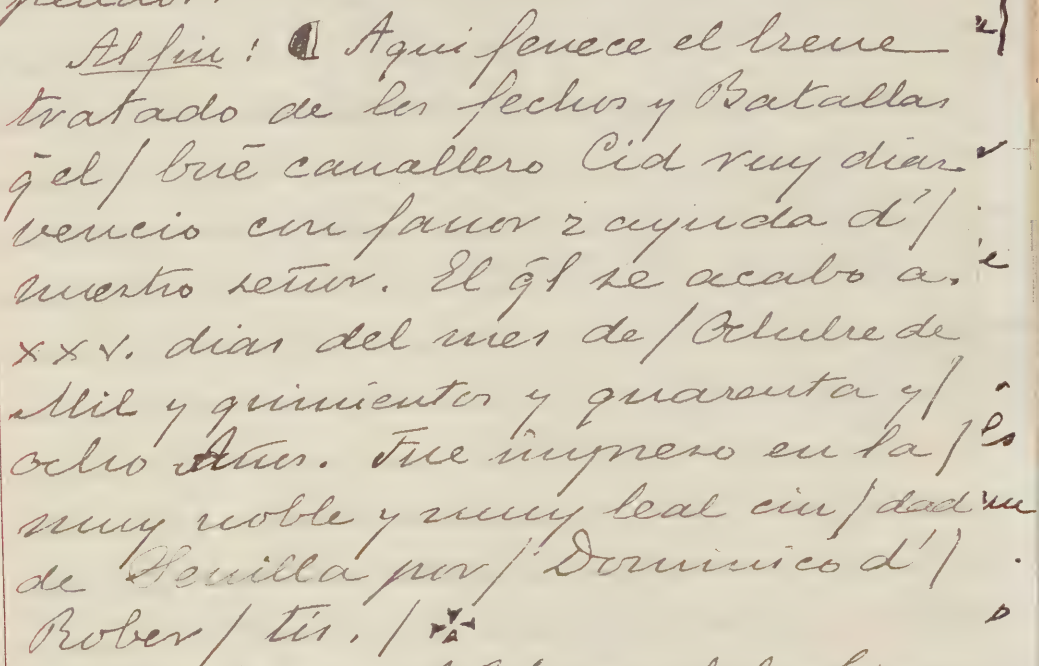 Al fin: ¶ Aqui fenece el breue
tratado de los fechos y Batallas
q̄ el / buē cauallero Cid ruy diaz
vencio con fauor z ayuda d' /
nuestro señor. El q̄l se acabo a.
xxv. dias del mes de / Octubre de
Mil y quinientos y quarenta y /
ocho Años. Fue impreso en la /
muy noble y muy leal ciu / dad
de Seuilla por / Dominico d' /
Rober / tis. / ✠